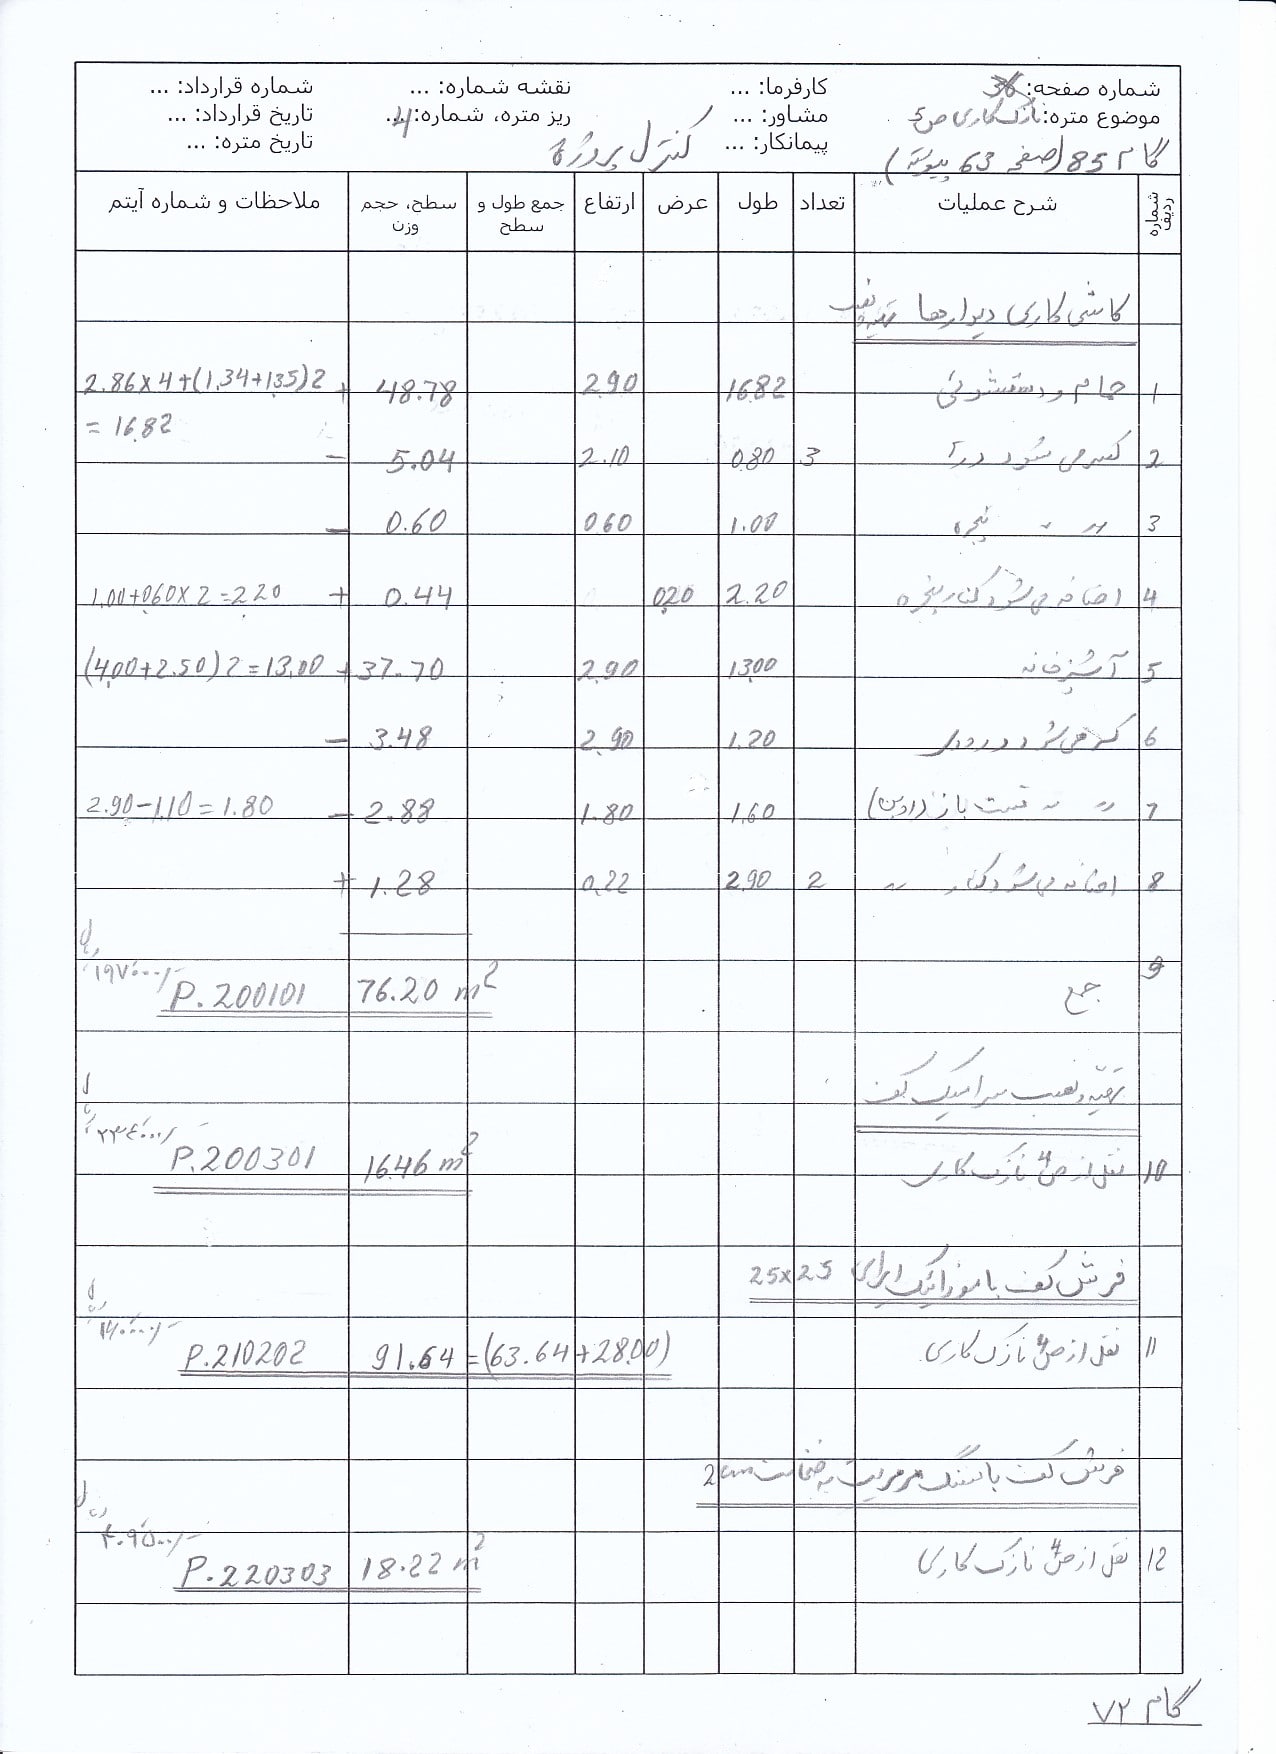 شماره صفحه: 36 کارفرما: ... نقشه شماره: ... شماره قرارداد: ...
موضوع متره: نازک کاری ص 5 مشاور: ... ریز متره، شماره: ... 4 تاریخ قرارداد: ...
پیمانکار: ... تاریخ متره: ...
گام 85 (صفحه 63 پیوست) کنترل پروژه
شماره ردیف شرح عملیات تعداد طول عرض ارتفاع جمع طول و سطح سطح، حجم وزن ملاحظات و شماره آیتم
کاشی کاری دیوارها تهیه و نصب
1 حمام و دستشوئی 16.82 2.90 48.78 + 2.86x4+(1.34+1.35)2
= 16.82
2 کسر می شود درب 3 0.80 2.10 5.04 -
3 〃 〃 پنجره 1.00 0.60 0.60 -
4 اضافه می شود کنار پنجره 2.20 0.20 0.44 + 1.00+0.60x2=2.20
5 آشپزخانه 13.00 2.90 37.70 + (4.00+2.50)2=13.00
6 کسر می شود ورودی 1.20 2.90 3.48 -
7 〃 〃 قسمت باز (اوپن) 1.60 1.80 2.88 - 2.90-1.10=1.80
8 اضافه می شود کنار 〃 2 2.90 0.22 1.28 +
9 جمع 76.20 m² P.200101 ۱۹۷۰۰۰/-
تهیه و نصب سرامیک کف
10 نقل از ص 4 نازک کاری 16.46 m² P.200301 ۲۳۴۰۰۰/-
فرش کف با موزائیک ایرانی 25x25
11 نقل از ص 4 نازک کاری (63.64+28.00)= 91.64 P.210202
فرش کف با سنگ مرمریت به ضخامت 2cm
12 نقل از ص 4 نازک کاری 18.22 m² P.220303 ۴۰۹۵۰۰/-
گام ۷۲